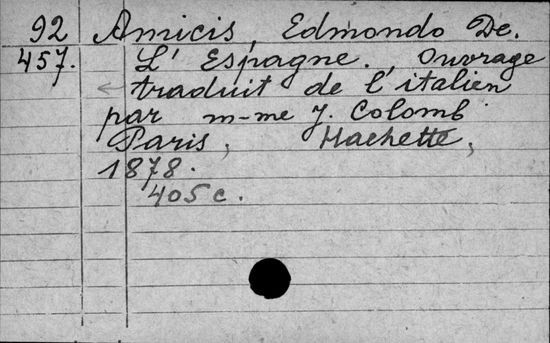 92 Amicis, Edmondo De.
457. L'Espagne. Ouvrage
traduit de l'italien
par m-me J. Colomb
Paris, Hachette,
1878.
405 c.